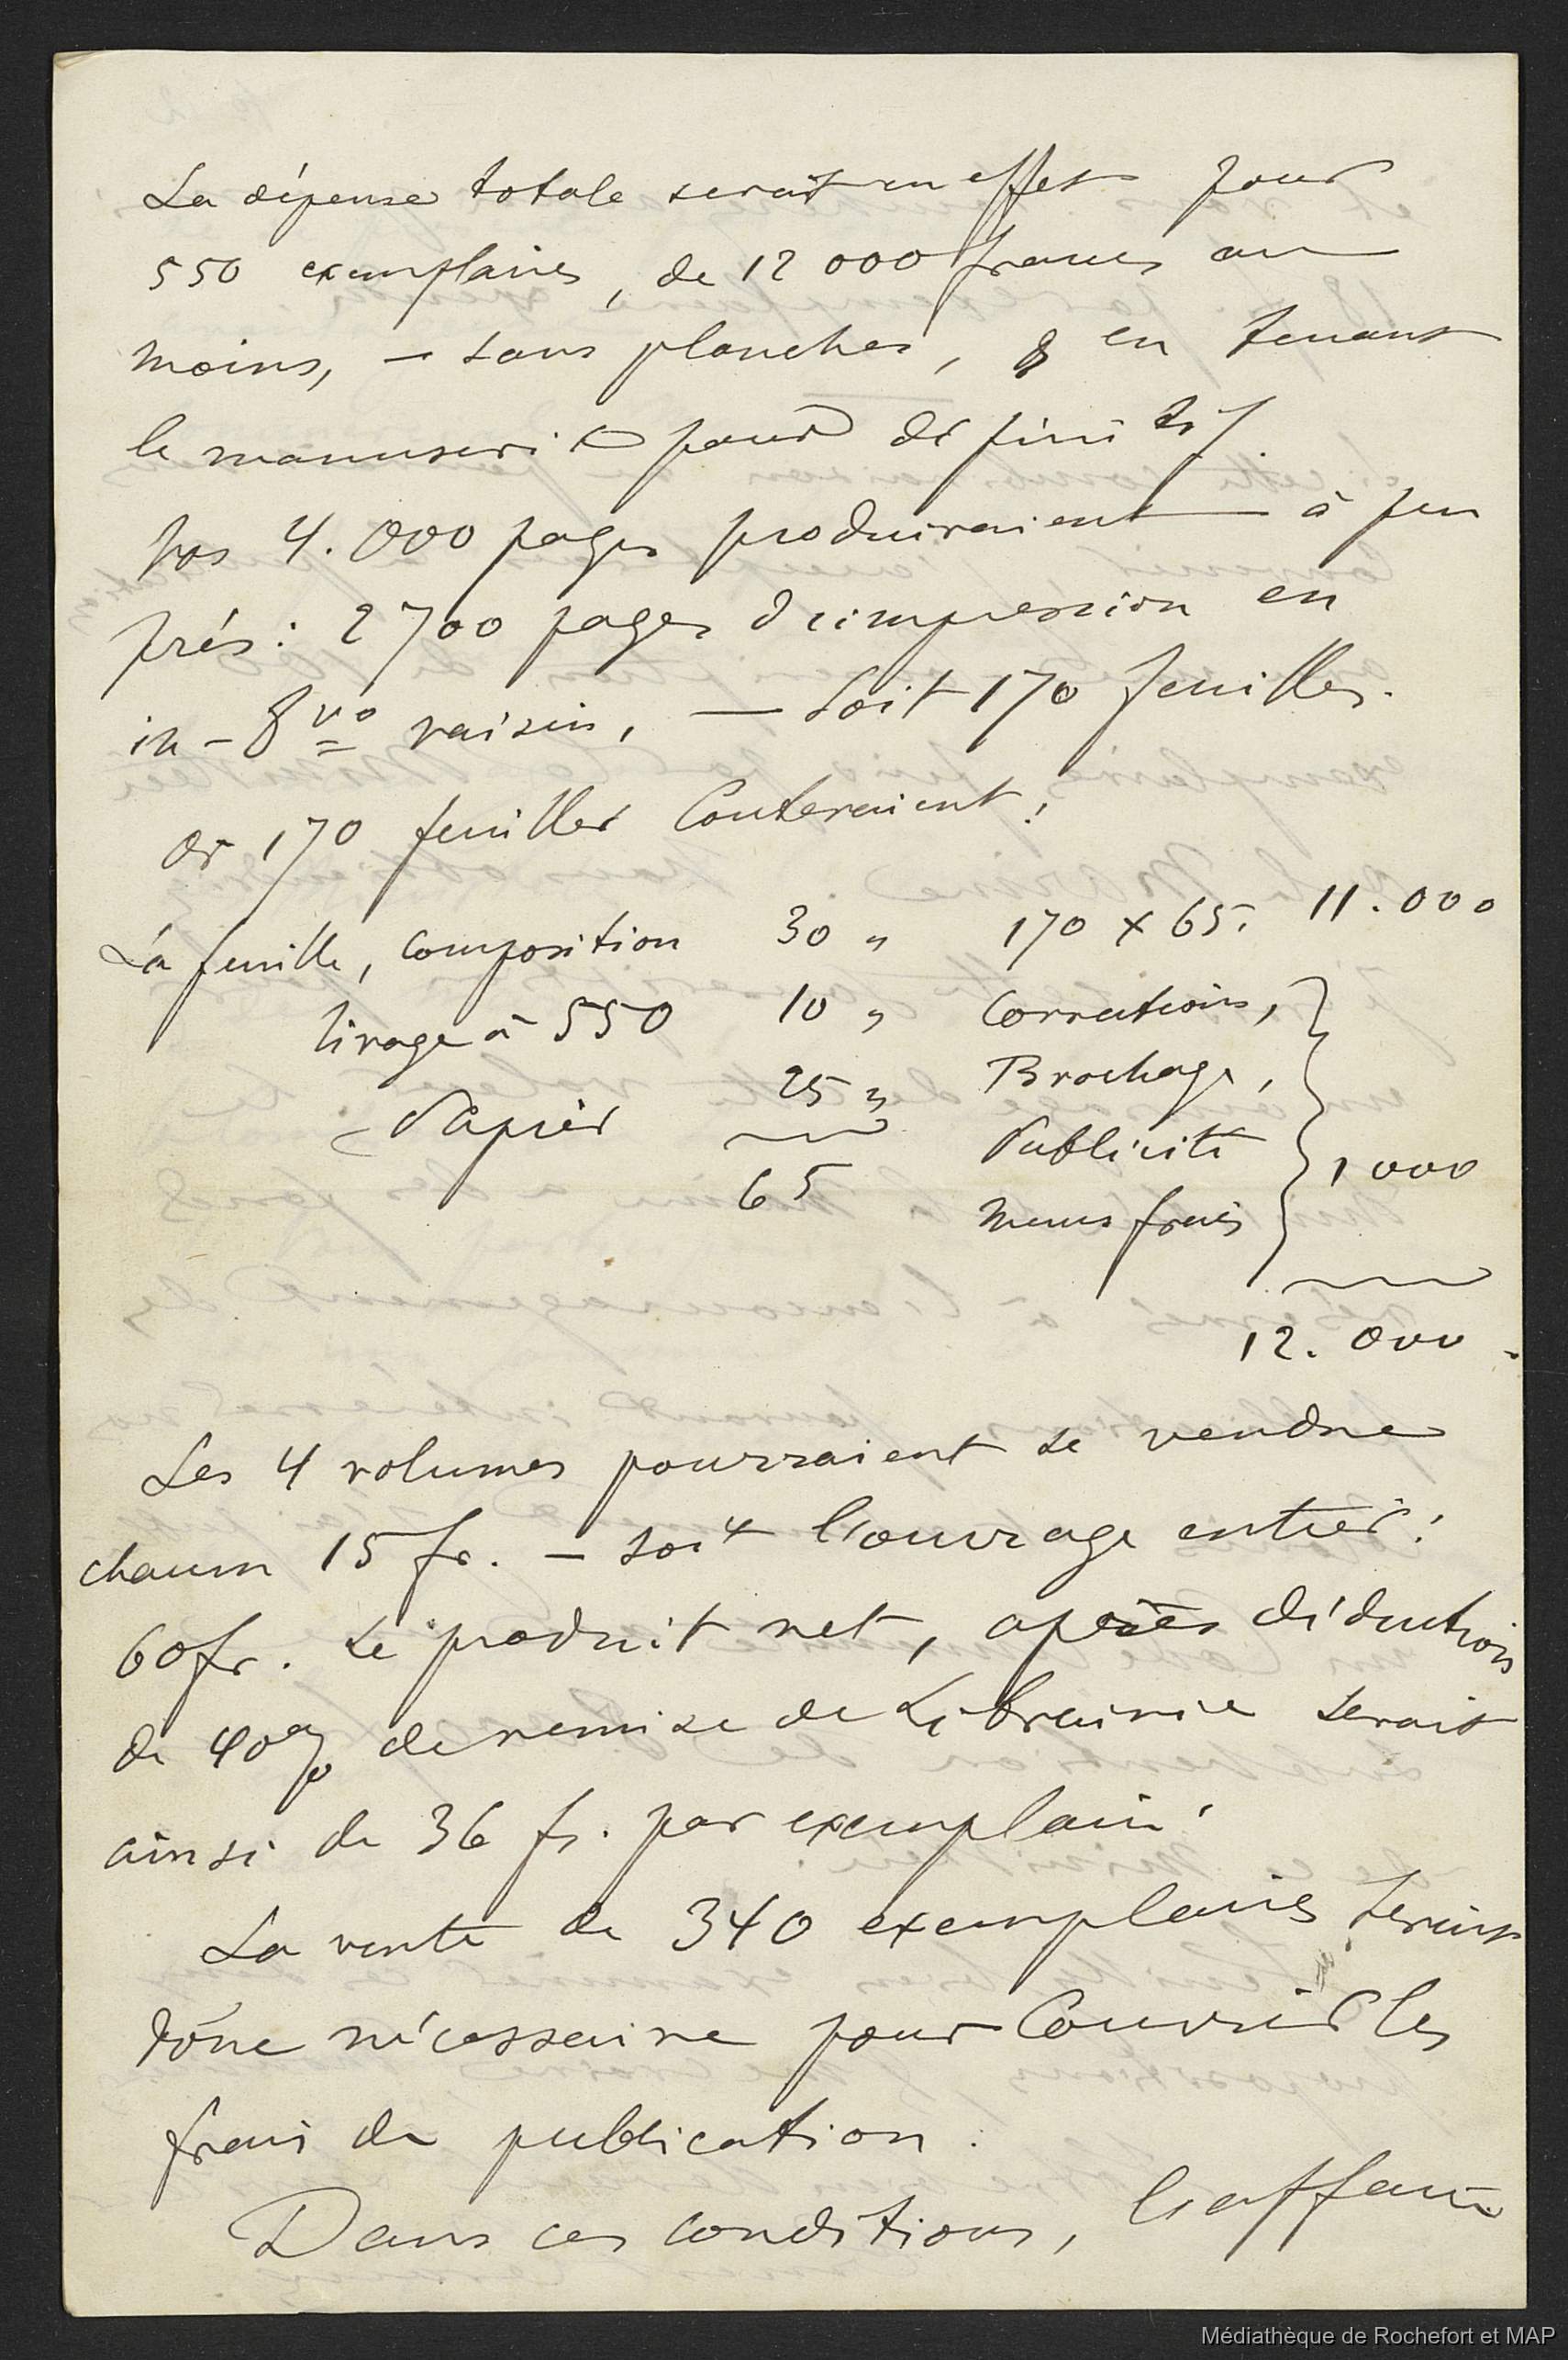 La dépense totale serait en effet pour
550 exemplaires, de 12 000 francs au
moins, — sans planches, & en tenant
le manuscrit pour définitif.
Vos 4.000 pages produiraient à peu
près : 2700 pages d'impression en
in-8vo raisin, — soit 170 feuilles.
Or 170 feuilles couteraient :
La feuille, composition 30 " 170 x 65. 11.000
tirage à 550 10 " Corrections,
Papier 25 " Brochage,
65 Publicité 1 000
menus frais
12. 000.
Les 4 volumes pourraient se vendre
chacun 15 fr. — soit l'ouvrage entier :
60 fr. Le produit net, après déduction
de 40% de remise de Librairie serait
ainsi de 36 fr. par exemplaire.
La vente de 340 exemplaires serait
donc nécessaire pour couvrir les
frais de publication.
Dans ces conditions, l'affaire
Médiathèque de Rochefort et MAP